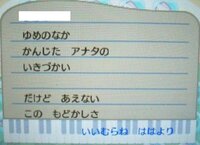 ゆめのなか
かんじた アナタの
いきづかい
だけど あえない
この もどかしさ
いいむらね ははより